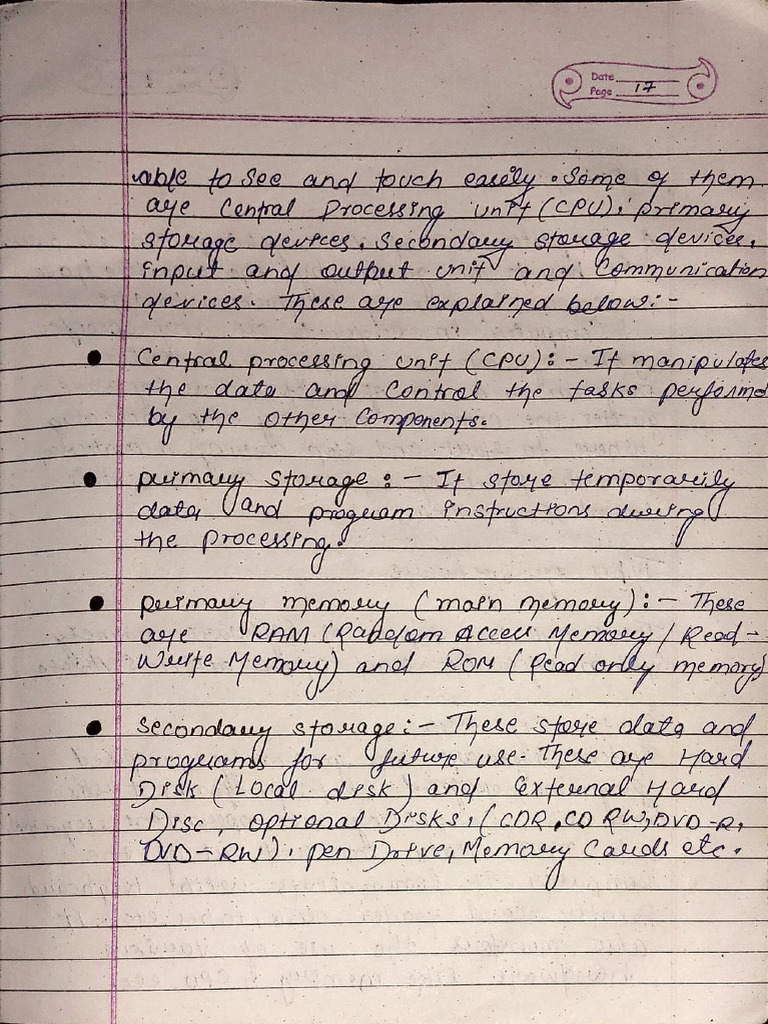 Date
Page 17
able to see and touch easily. Some of them
are Central Processing unit (CPU), primary
storage devices, Secondary storage devices,
input and output unit and Communication
devices. These are explained below:-
• Central processing unit (CPU):- It manipulates
the data and Control the tasks performed
by the other Components.
• primary storage :- It store temporarily
data and program instructions during
the processing.
• primary memory (main memory):- These
are RAM (Random Access Memory / Read-
Write Memory) and ROM (Read only memory)
• Secondary storage:- These store data and
programs for future use. These are Hard
Disk (Local disk) and External Hard
Disc, optional Disks, (CDR, CD RW, DVD-R,
DVD-RW), pen Drive, Memory Cards etc.